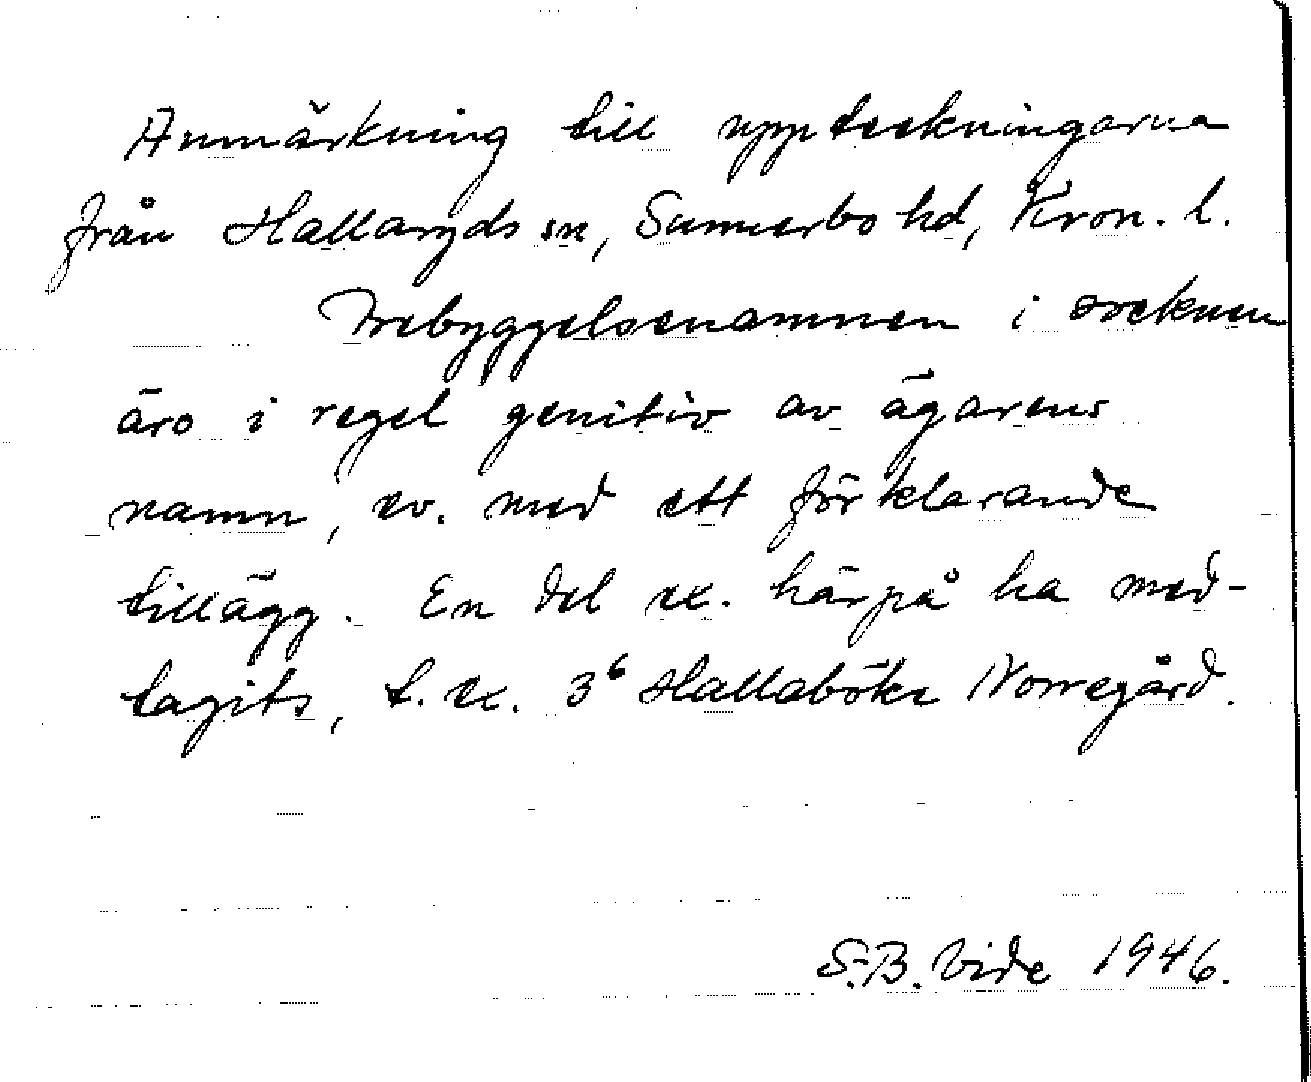 Anmärkning till uppteckningarna
från Hallaryds sn, Sunnerbo hd, Kron. l.
Inebyggelsenamnen i socknen
äro i regel genitiv av ägarens
namn, ev. med ett förklarande
tillägg. En del ex. härpå ha med-
tagits, t. ex. 3⁶ Hallaböke Norregård.
S.B. Vide 1946.